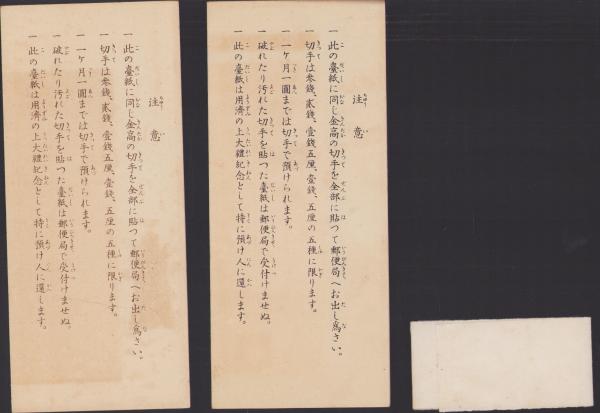 注意
一 此の臺紙に同じ金高の切手を全部に貼つて郵便局へお出し爲さい。
一 切手は參錢、貳錢、壹錢五厘、壹錢、五厘の五種に限ります。
一 一ケ月一圓までは切手で預けられます。
一 破れたり汚れた切手を貼つた臺紙は郵便局で受付けませぬ。
一 此の臺紙は用濟の上大禮記念として特に預け人に還します。
注意
一 此の臺紙に同じ金高の切手を全部に貼つて郵便局へお出し爲さい。
一 切手は參錢、貳錢、壹錢五厘、壹錢、五厘の五種に限ります。
一 一ケ月一圓までは切手で預けられます。
一 破れたり汚れた切手を貼つた臺紙は郵便局で受付けませぬ。
一 此の臺紙は用濟の上大禮記念として特に預け人に還します。